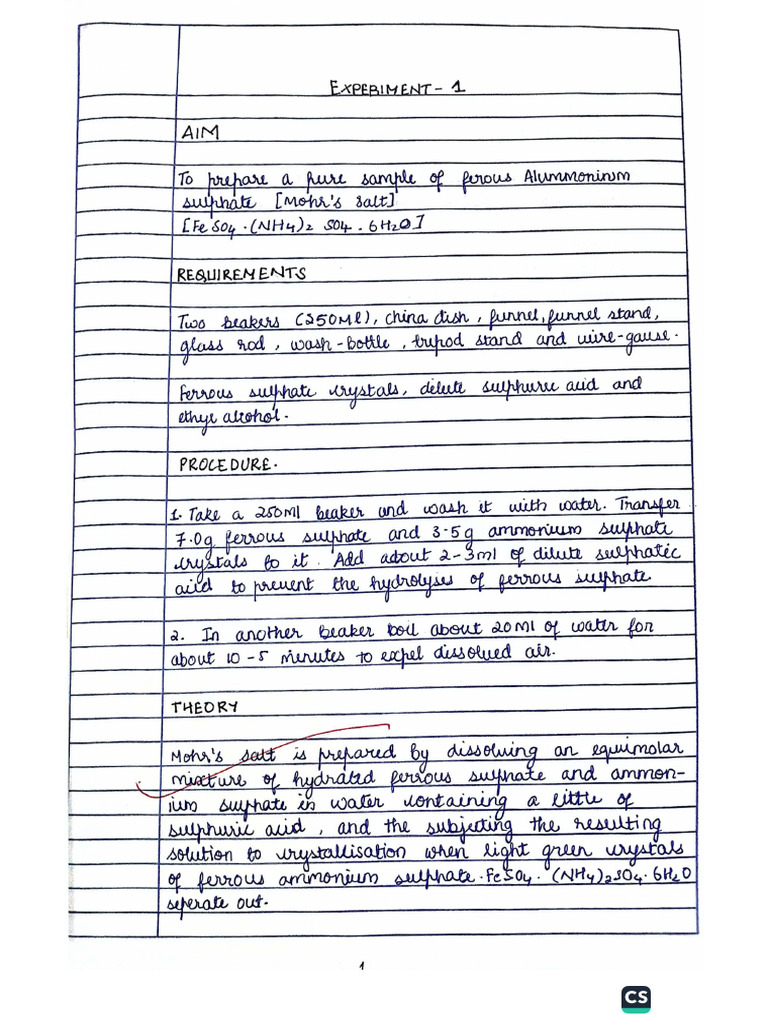 EXPERIMENT - 1
AIM
To prepare a pure sample of ferous Alummoninum
sulphate [Mohr's salt]
[FeSO4.(NH4)2 SO4.6H2O]
REQUIREMENTS
Two beakers (250Ml), china dish, funnel, funnel stand,
glass rod, wash-bottle, tripod stand and wire-gause.
Ferrous sulphate crystals, dilute sulphuric acid and
ethyl alcohol.
PROCEDURE.
1. Take a 250Ml beaker and wash it with water. Transfer
7.0g ferrous sulphate and 3.5g ammonium sulphate
crystals to it. Add about 2-3ml of dilute sulphatic
acid to prevent the hydrolyses of ferrous sulphate
2. In another beaker boil about 20Ml of water for
about 10-5 minutes to expel dissolved air.
THEORY
Mohr's salt is prepared by dissolving an equimolar
mixture of hydrated ferrous sulphate and ammon-
ium sulphate in water containing a little of
sulphuric acid, and the subjecting the resulting
solution to crystallisation when light green crystals
of ferrous ammonium sulphate.FeSO4.(NH4)2SO4.6H2O
seperate out.
1
CS